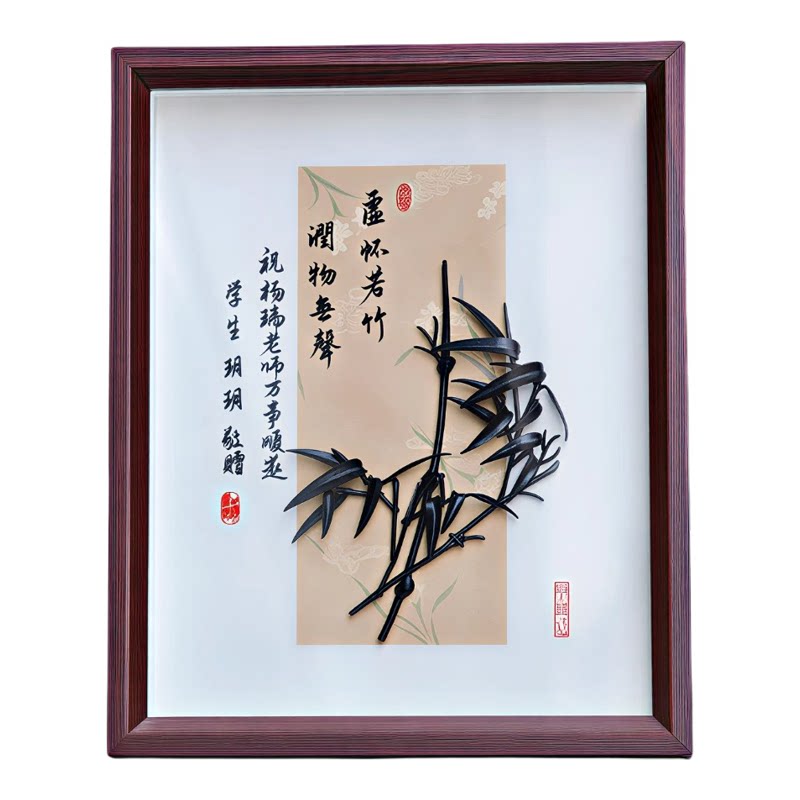 虛怀若竹
潤物無聲
祝杨瑞老师万事顺遂
学生玥玥敬赠